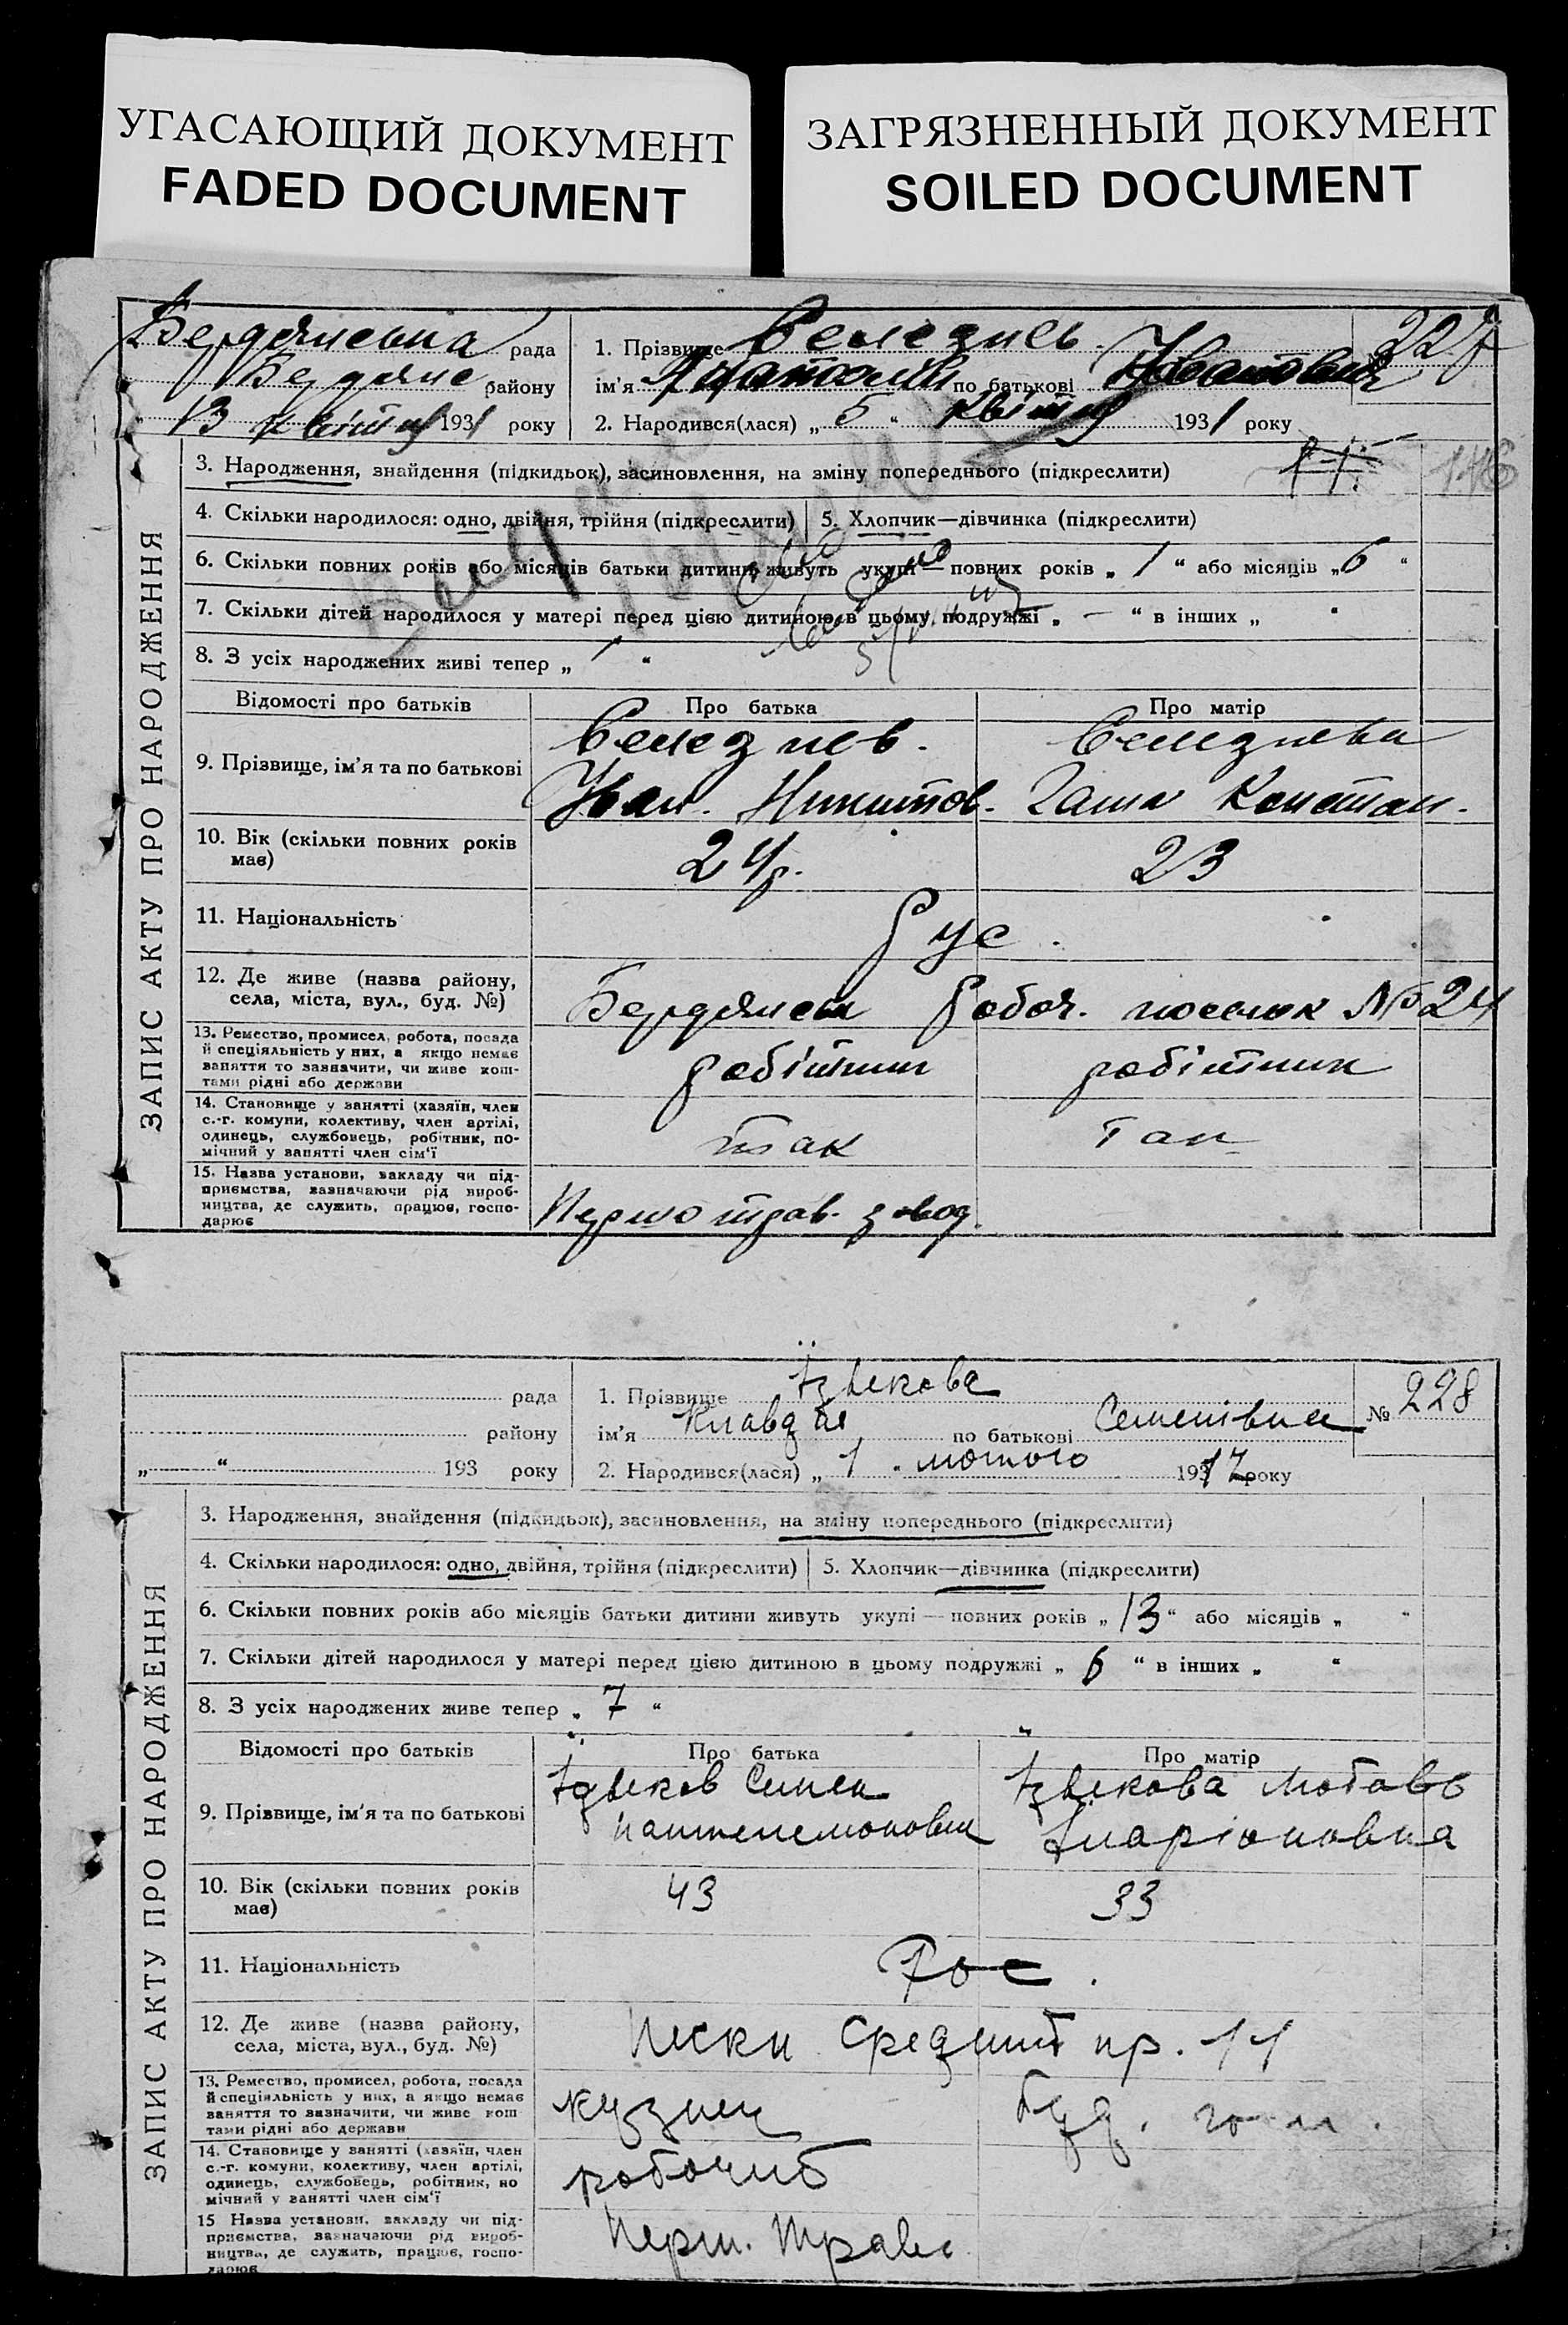 УГАСАЮЩИЙ ДОКУМЕНТ
FADED DOCUMENT
ЗАГРЯЗНЕННЫЙ ДОКУМЕНТ
SOILED DOCUMENT
Бердянська рада
Бердянс району
13 квітня 1931 року
1. Прізвище Селезнев 227
ім'я Анатолий по батькові Иванович
2. Народився(лася) „ 5 “ квітня 1931 року
ЗАПИС АКТУ ПРО НАРОДЖЕННЯ
3. Народження, знайдення (підкидьок), засиновлення, на зміну попереднього (підкреслити)
4. Скільки народилося: одно, двійня, трійня (підкреслити) 5. Хлопчик—дівчинка (підкреслити)
6. Скільки повних років або місяців батьки дитини живуть укупі — повних років „ 1 “ або місяців „ 6 “
7. Скільки дітей народилося у матері перед цією дитиною в цьому подружжі „ — “ в інших „ “
8. З усіх народжених живі тепер „ 1 “
Відомості про батьків Про батька Про матір
9. Прізвище, ім'я та по батькові
Селезнев. Селезнева
Иван. Никитов. Констан.
10. Вік (скільки повних років має) 24р. 23
11. Національність Рус.
12. Де живе (назва району, села, міста, вул., буд. №) Бердянськ Робоч. поселок № 24
13. Ремество, промисел, робота, посада й спеціяльність у них, а якщо немає заняття то зазначити, чи живе коштами рідні або держави робітник робітник
14. Становище у занятті (хазяїн, член с.-г. комуни, колективу, член артілі, одинець, службовець, робітник, помічний у занятті член сім'ї так так
15. Назва установи, закладу чи підприємства, зазначаючи рід виробництва, де служить, працює, господарює Першотрав. завод.
рада
району
„ “ 193 року
1. Прізвище Їзвекова № 228
ім'я Клавдія по батькові Семенівна
2. Народився(лася) „ 1 „ лютого 1917 року
ЗАПИС АКТУ ПРО НАРОДЖЕННЯ
3. Народження, знайдення (підкидьок), засиновлення, на зміну попереднього (підкреслити)
4. Скільки народилося: одно, двійня, трійня (підкреслити) 5. Хлопчик—дівчинка (підкреслити)
6. Скільки повних років або місяців батьки дитини живуть укупі — повних років „ 13 “ або місяців „ “
7. Скільки дітей народилося у матері перед цією дитиною в цьому подружжі „ 6 “ в інших „ “
8. З усіх народжених живе тепер „ 7 “
Відомості про батьків Про батька Про матір
9. Прізвище, ім'я та по батькові
Їзвеков Семен Їзвекова Любовь
Пантелемонович Іларіоновна
10. Вік (скільки повних років має) 43 33
11. Національність Рос.
12. Де живе (назва району, села, міста, вул., буд. №) Пески Средний пр. 11
13. Ремество, промисел, робота, посада й спеціяльність у них, а якщо немає заняття то зазначити, чи живе коштами рідні або держави кузнец
14. Становище у занятті (хазяїн, член с.-г. комуни, колективу, член артілі, одинець, службовець, робітник, помічний у занятті член сім'ї рабочий
15 Назва установи, закладу чи підприємства, зазначаючи рід виробництва, де служить, працює, господарює Перш. Травс